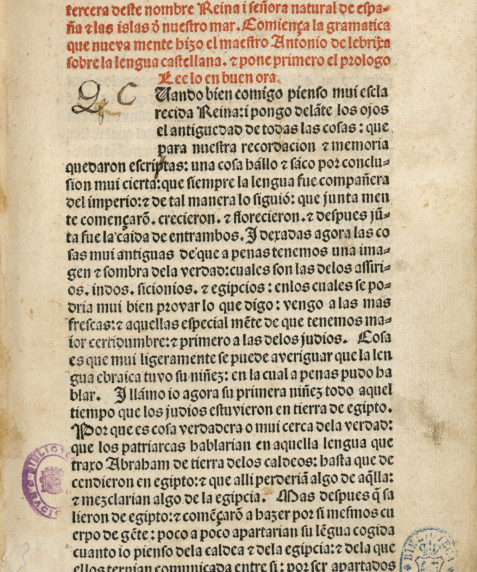 tercera deste nombre Reina i señora natural de espa⸗
ña ⁊ las islas d̄ nuestro mar. Comiença la gramatica
que nueva mente hizo el maestro Antonio de lebrixa
sobre la lengua castellana. ⁊ pone primero el prologo
Lee lo en buen ora.
Uando bien comigo pienso mui escla
recida Reina: i pongo delāte los ojos
el antiguedad de todas las cosas: que
para nuestra recordacion ⁊ memoria
quedaron escriptas: una cosa hállo ⁊ sáco por conclu⸗
sion mui cierta: que siempre la lengua fue compañera
del imperio: ⁊ de tal manera lo siguió: que junta men
te començarō. crecieron. ⁊ florecieron. ⁊ despues jū⸗
ta fue la caida de entrambos. I dexadas agora las co
sas mui antiguas de que a penas tenemos una ima⸗
gen ⁊ sombra dela verdad: cuales son las delos assiri⸗
os. indos. sicionios. ⁊ egipcios: enlos cuales se po⸗
dria mui bien provar lo que digo: vengo a las mas
frescas: ⁊ aquellas especial mēte de que tenemos ma⸗
ior certidumbre: ⁊ primero a las delos judios. Cosa
es que mui ligeramente se puede averiguar que la len
gua ebraica tuvo su niñez: en la cual a penas pudo ha
blar. I llámo io agora su primera niñez todo aquel
tiempo que los judios estuvieron en tierra de egipto.
Por que es cosa verdadera o mui cerca dela verdad:
que los patriarcas hablarian en aquella lengua que
traxo Abraham de tierra delos caldeos: hasta que de
cendieron en egipto: ⁊ que alli perderiā algo de aq̄lla:
⁊ mezclarian algo de la egipcia. Mas despues q̄ sa
lieron de egipto: ⁊ començarō a hazer por si mesmos cu
erpo de gēte: poco a poco apartarian su lēgua cogida
cuanto io pienso dela caldea ⁊ dela egipcia: ⁊ dela que
ellos ternian comunicada entre si: por ser apartados